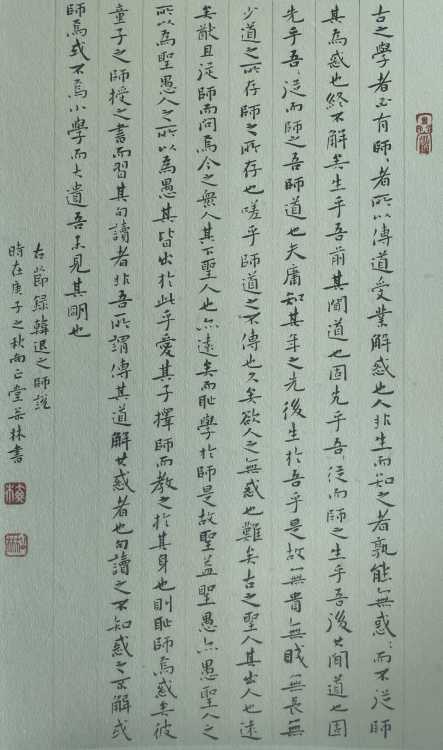 古之學者必有師〻者所以傳道受業解惑也人非生而知之者孰能無惑〻而不從師
其為惑也終不解矣生乎吾前其聞道也固先乎吾〻從而師之生乎吾後其聞道也固
先乎吾〻從而師之吾師道也夫庸知其年之先後生於吾乎是故無貴無賤無長無
少道之所存師之所存也嗟乎師道之不傳也久矣欲人之無惑也難矣古之聖人其出人也遠
矣猶且從師而問焉今之無人其下聖人也亦遠矣而恥學於師是故聖益聖愚亦愚聖人之
所以為聖愚人之所以為愚其皆出於此乎愛其子擇師而教之於其身也則恥師焉惑矣彼
童子之師授之書而習其句讀者非吾所謂傳其道解其惑者也句讀之不知惑之不解或
師焉或不焉小學而大遺吾未見其明也
右節錄韓退之師說
時在庚子之秋堂林書